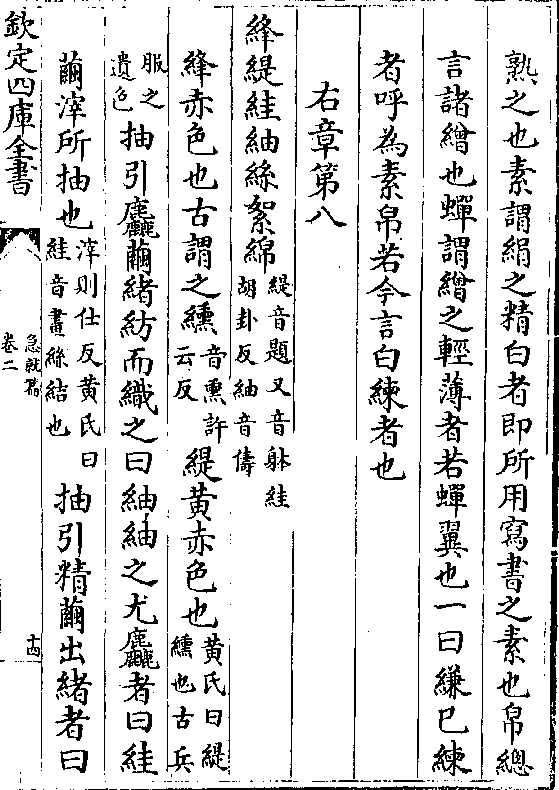 熟之也素謂絹之精白者即所用寫書之素也帛總
言諸繒也蟬謂繒之輕薄者若蟬翼也一曰縑已練
者呼為素帛若今言白練者也
右章第八
絳緹絓紬絲絮綿緹音題又音躰絓
胡卦反紬音儔
絳赤色也古謂之纁音熏許
云反緹黄赤色也黄氏曰緹
纁也古兵
服之
遺色抽引麤繭緒紡而織之曰紬紬之尤麤者曰絓
繭滓所抽也滓則仕反黄氏曰
絓音畫絲結也抽引精繭出緒者曰
欽定四庫全書
急就篇
卷二
十四